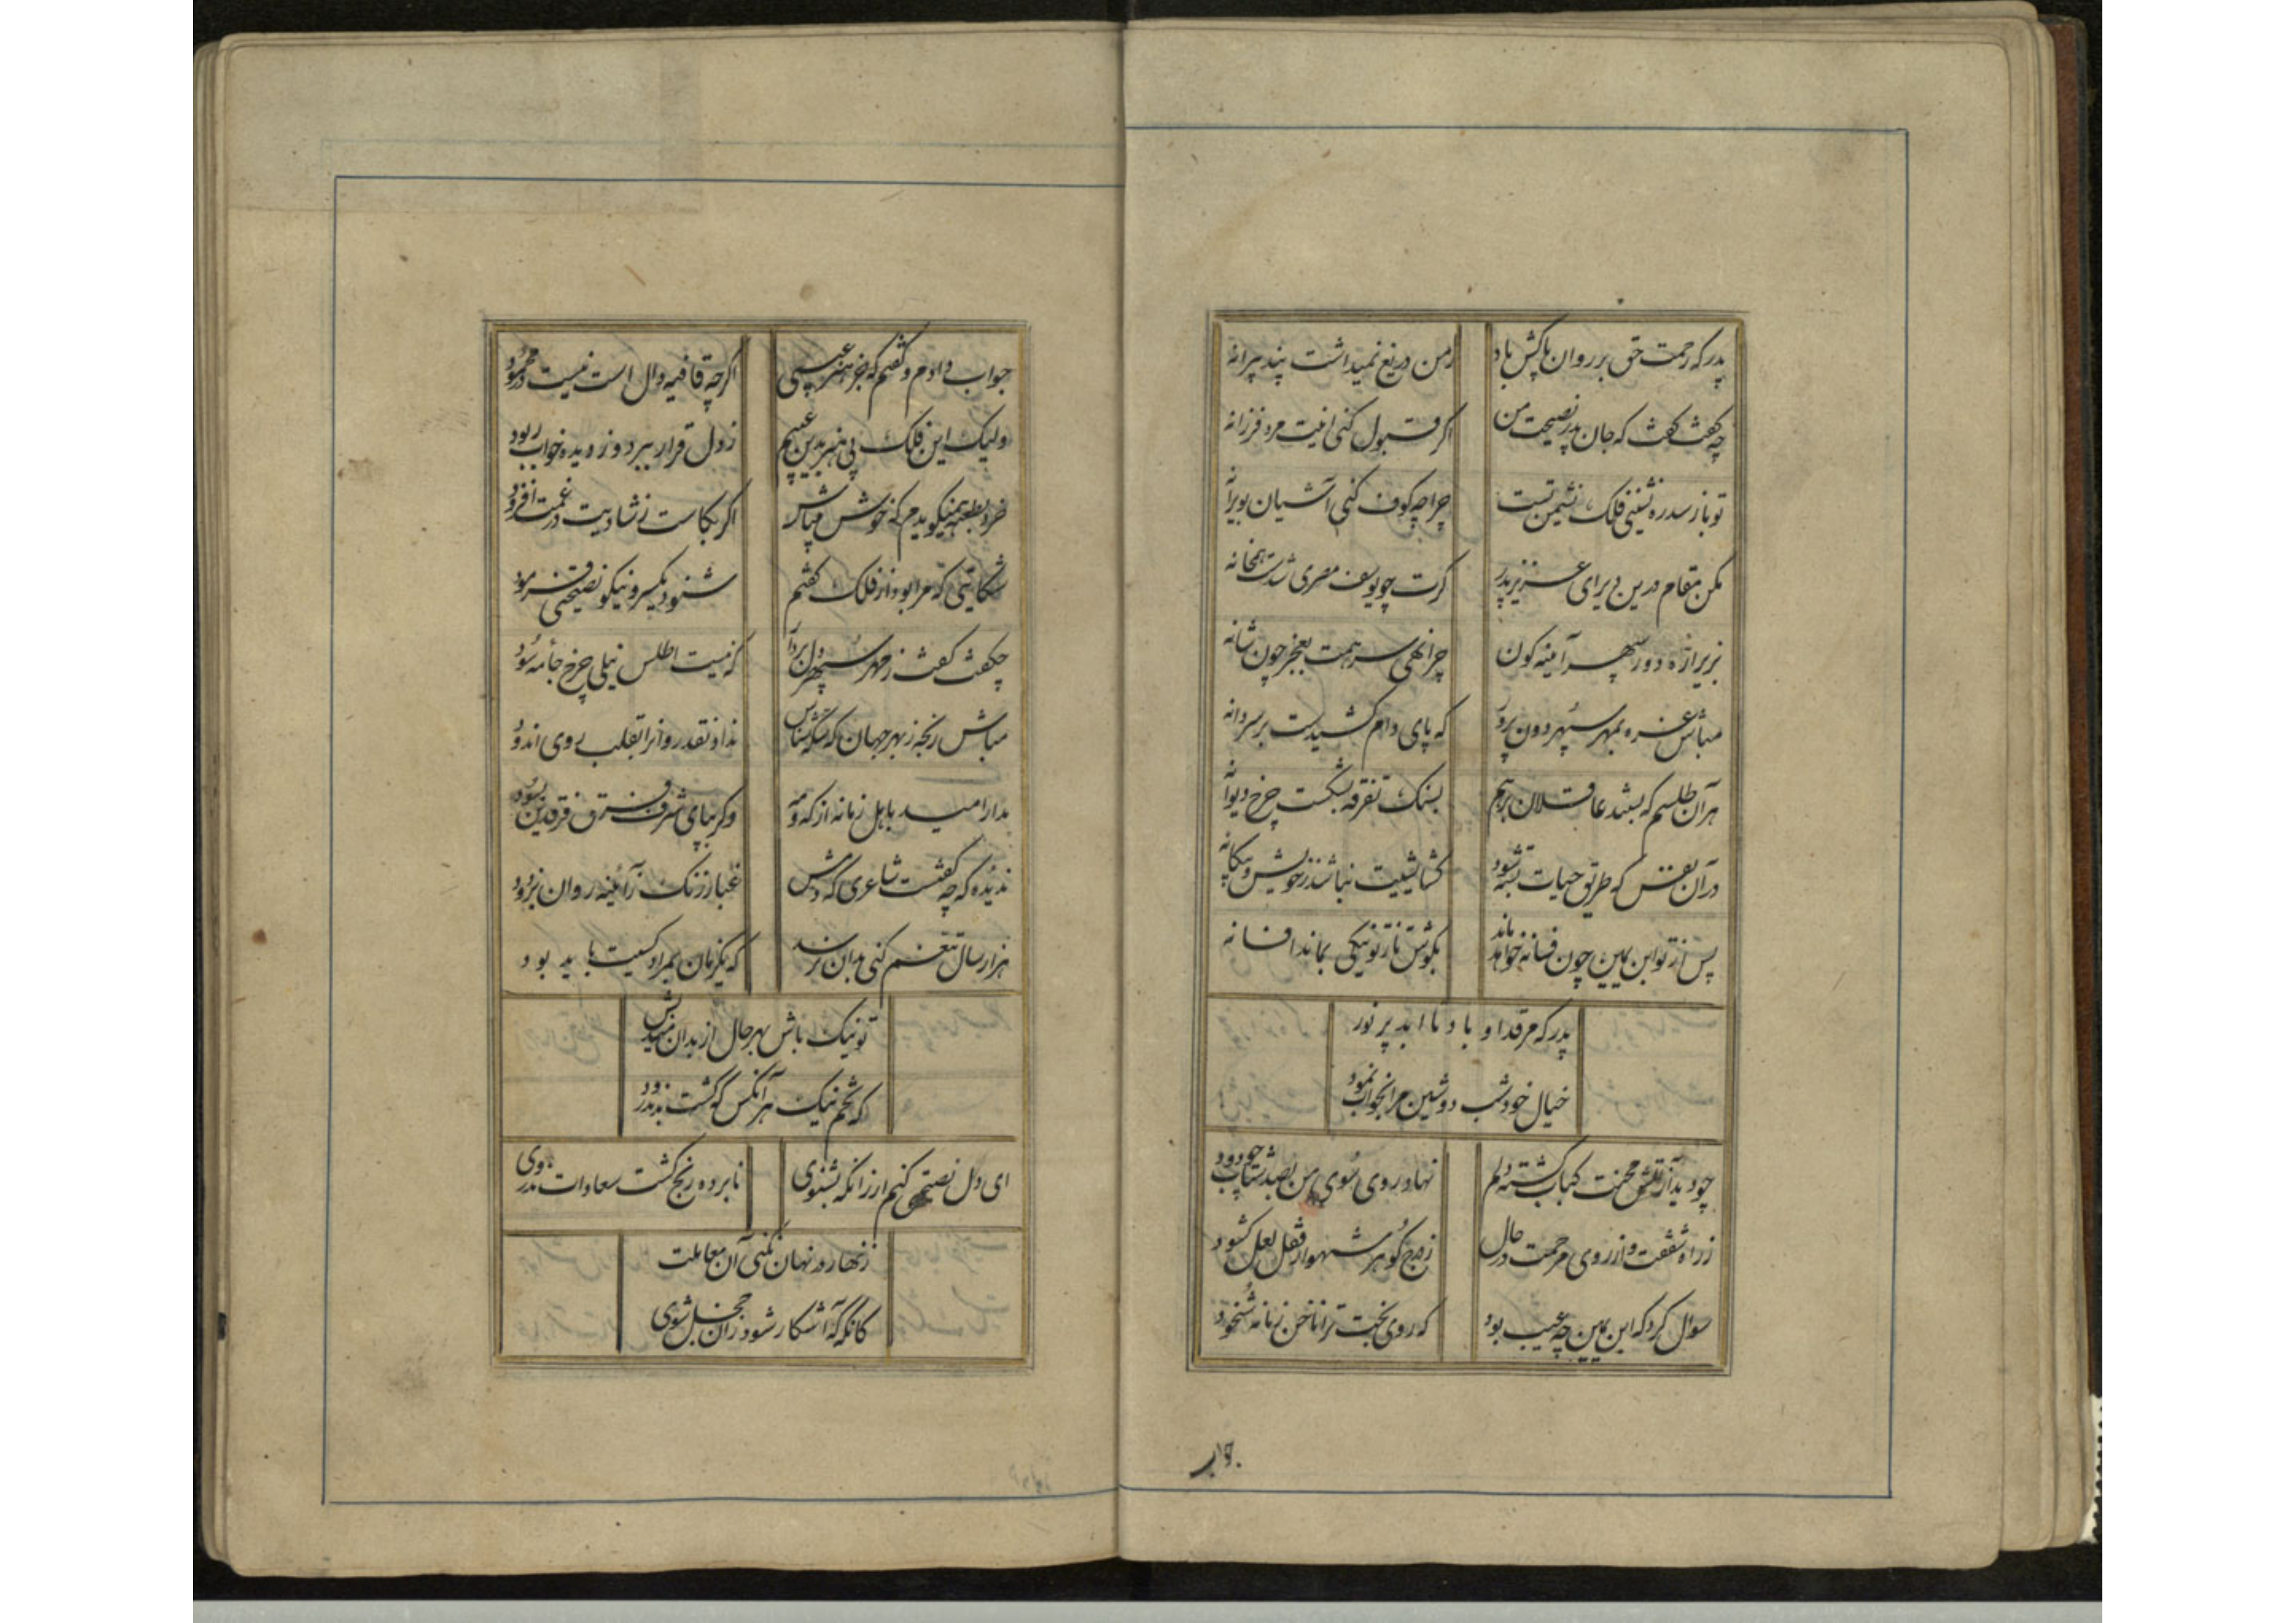 پدر که رحمت حق بر روان پاکش باد
زمن دریغ نمیداشت پند پیرانه
چه گفت گفت که جان پدر نصیحت من
اگر قبول کنی اینت مرد فرزانه
تو باز سدره نشینی فلک نشیمن تست
چرا چو کوف کنی آشیان بویرانه
مکن مقام درین دیر ای عزیز پدر
گرت چو یوسف مصری شدست همخانه
بزیر ازه دور سپهر آینه کون
چرا نهی سر همت بعجز چون شانه
مباش غره بمهر سپهر دون پرور
که پای دام کشیدست بر سر دانه
هر آن طلسم که بستند عاقلان برهم
بسنک تفرقه بشکست چرخ دیوانه
در آن نفس که طریق حیات بسته شود
کشایشیت نباشد ز خویش و بیکانه
پس از تو ابن یمین چون فسانه خواهد ماند
بکوش تا ز تو نیکی بماند افسانه
پدر که مرقد او باد تا ابد پر نور
خیال خود شب دوشین مرا بخواب نمود
چو دید از آتش محنت کباب گشته دلم
نهاد روی سوی من بصد شتاب چو دود
ز راه شفقت و از روی مرحمت در حال
ز درج گوهر شهوار قفل لعل کشود
سوال کرد که ابن یمین چه عیب بود
که روی بخت ترا ناخن زمانه شخود
جواب
جواب دادم و گفتم که جز هنر عیبی
اگر چه قافیه دال است نیست در محمود
ولیک این فلک بی هنر بدین عیبم
ز دل قرار ببرد و ز دیده خواب ربود
خرد بطعنه همیکویدم که خوش میباش
اگر بکاست ز شادیت در غمت افزود
شکایتی که مرا بود از فلک گفتم
شنود یکسر و نیکو نصیحتی فرمود
چه گفت گفت ز مهر سپهر دل بردار
که نیست اطلس نیلی چرخ جامه سود
مباش رنجه ز بهر جهان که سکه شناس
نداد نقد روانرا بقلب روی اندود
مدار امید باهل زمانه از که و مه
وگر بپای شرف فرق فرقدین بسود
ندیده که چه گفتست شاعری که دمش
غبار زنک ز آئینه روان بزدود
هزار سال تنعم کنی بدان نرسد
که یکزمان بمراد کسیت باید بود
تو نیک باش بهر حال از بدان میندیش
که تخم نیک هر آنکس که کشت بد ندرود
ای دل نصیحتی کنم ار زانکه بشنوی
نابرده رنج کشت سعادات ندروی
زنهار در نهان نکنی آن معاملت
کانگه که آشکار شود زان خجل شوی